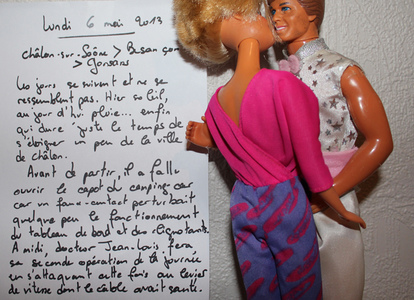 Lundi 6 mai 2013
Châlon-sur-Saône > Besançon
> Gonsans
Les jours se suivent et ne se
ressemblent pas. Hier soleil,
aujourd'hui pluie... enfin
qui dure juste le temps de
s'éloigner un peu de la ville
de Châlon.
Avant de partir, il a fallu
ouvrir le capot du camping-car
car un faux-contact perturbait
quelque peu le fonctionnement
du tableau de bord et des clignotants.
A midi, docteur Jean-Louis fera
sa seconde opération de la journée
en s'attaquant cette fois au levier
de vitesse dont le câble avait sauté.